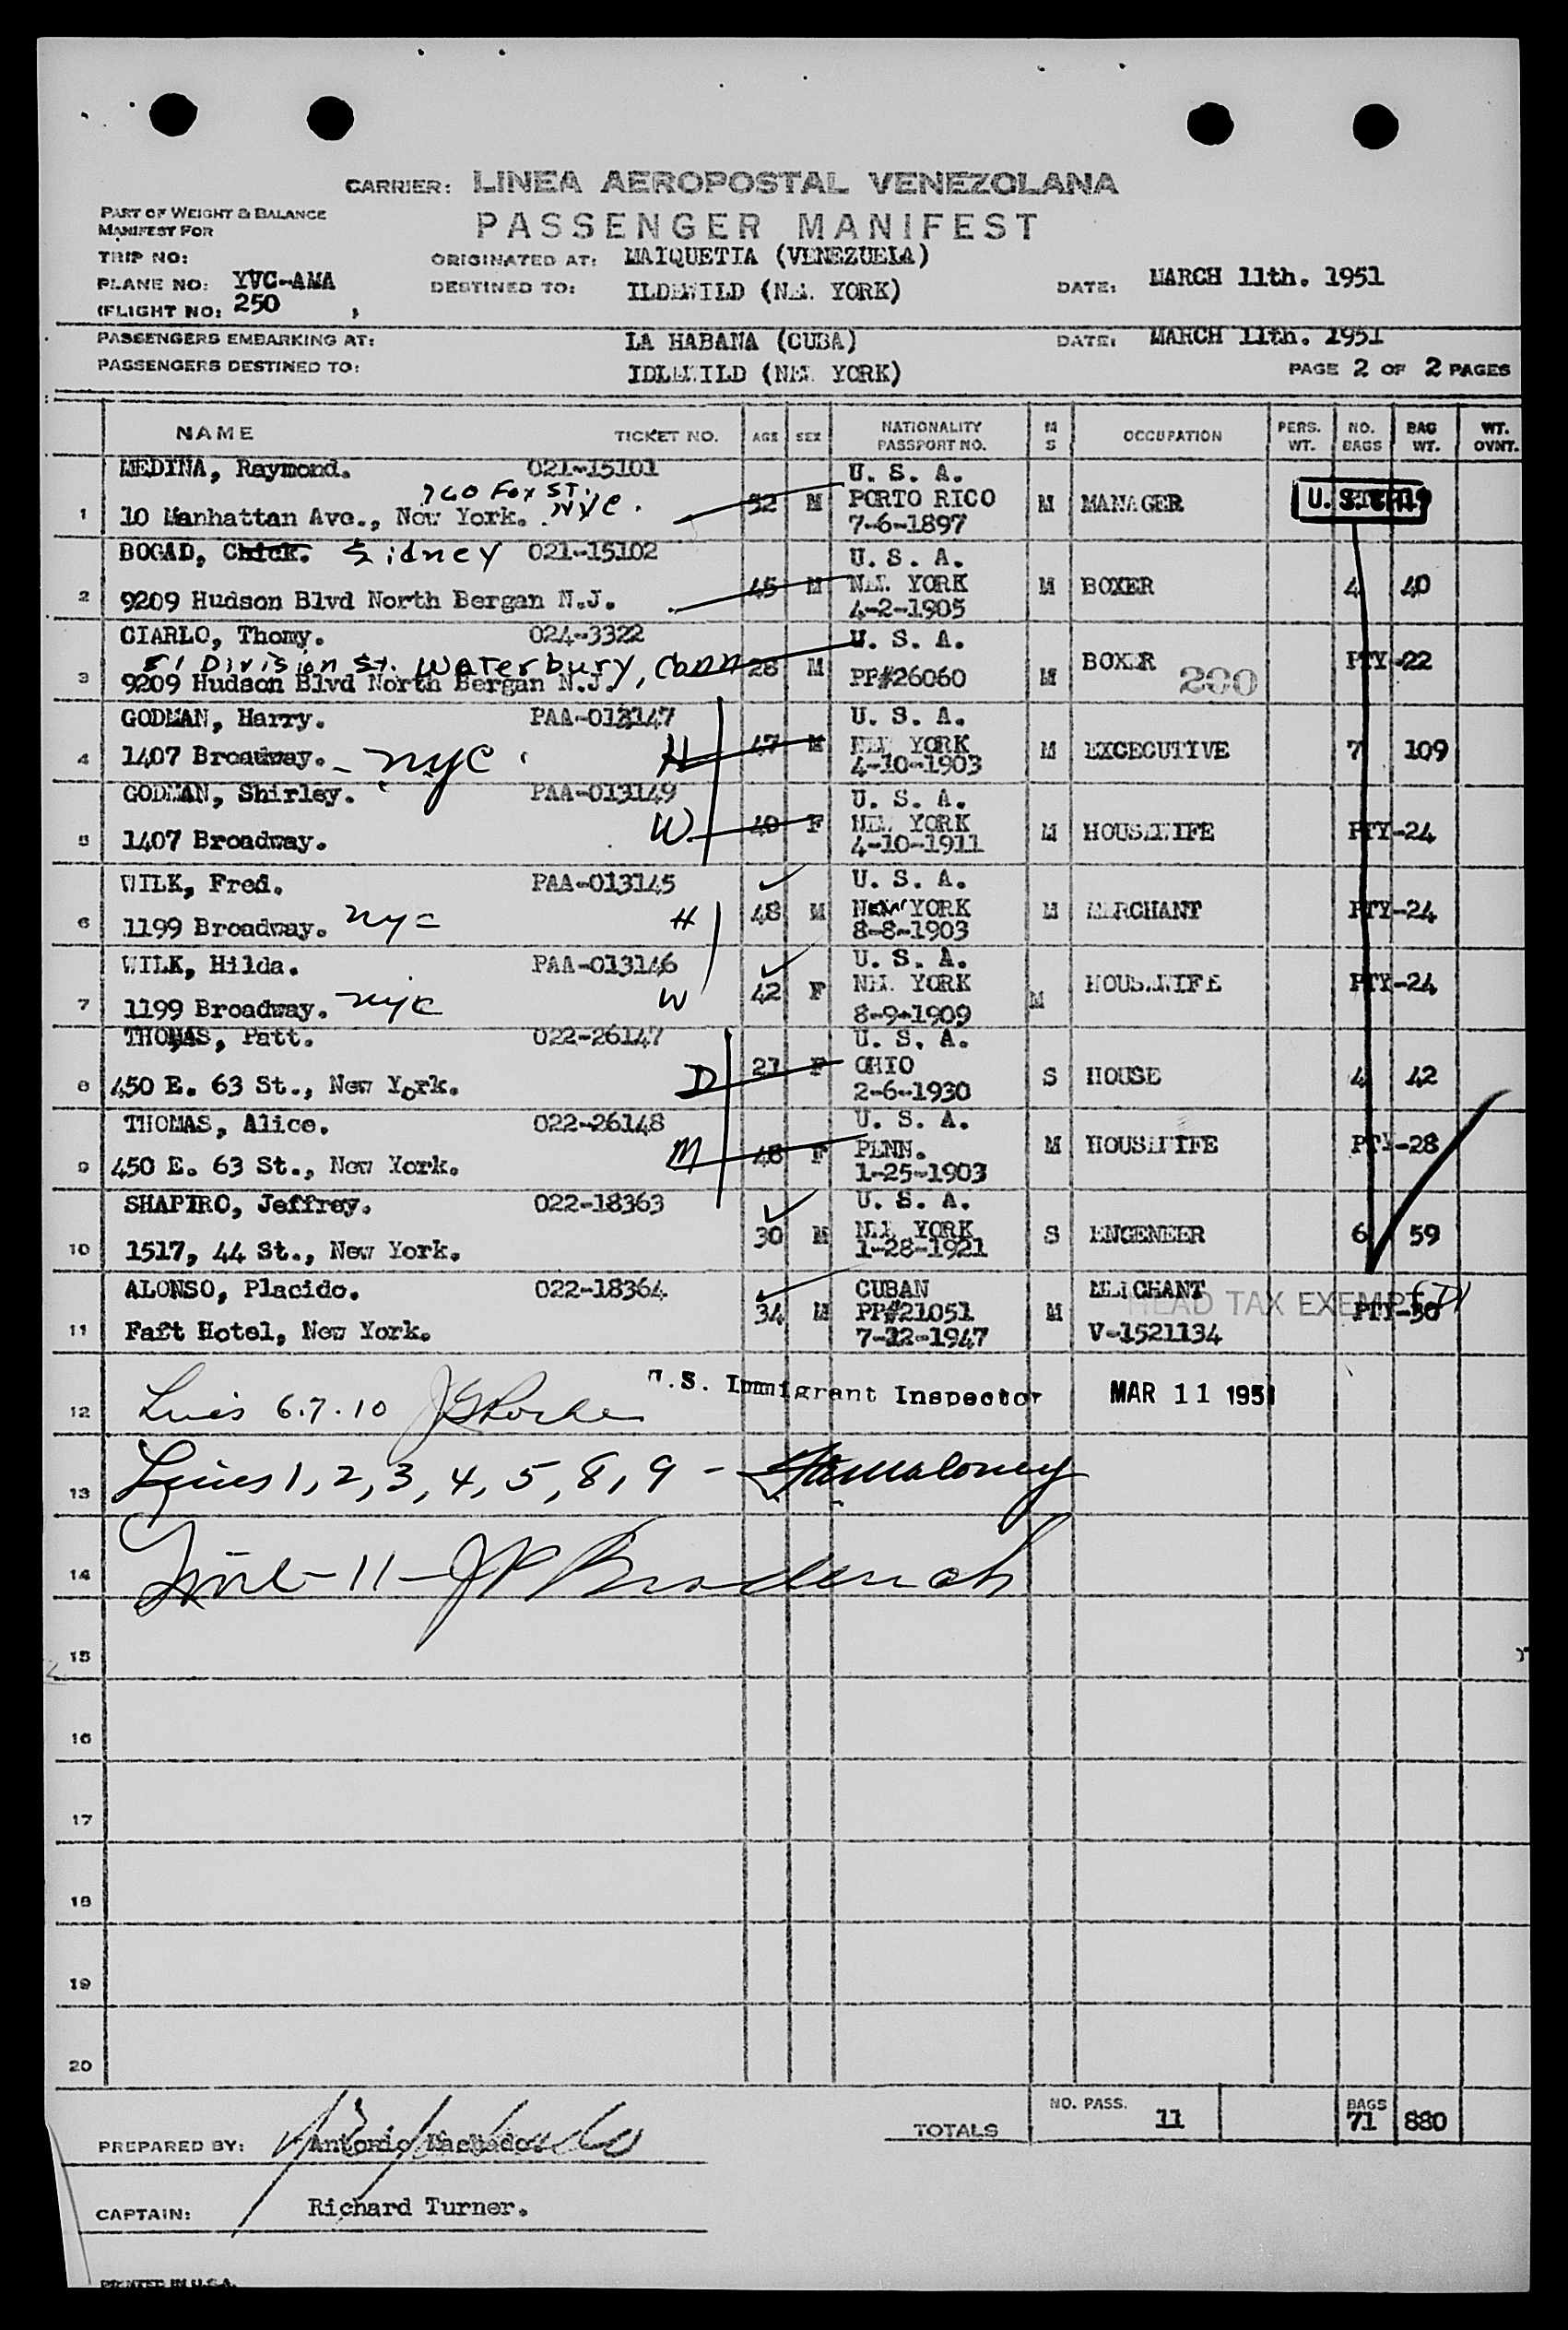 CARRIER: LINEA AEROPOSTAL VENEZOLANA
PART OF WEIGHT & BALANCE
MANIFEST FOR
PASSENGER MANIFEST
TRIP NO:
ORIGINATED AT: MAIQUETIA (VENEZUELA)
PLANE NO: YVC-AMA
DESTINED TO: ILDEWILD (NEW YORK)
DATE: MARCH 11th. 1951
(FLIGHT NO: 250
PASSENGERS EMBARKING AT: LA HABANA (CUBA)
DATE: MARCH 11th. 1951
PASSENGERS DESTINED TO: IDLEWILD (NEW YORK)
PAGE 2 OF 2 PAGES
NAME TICKET NO. AGE SEX NATIONALITY PASSPORT NO. M S OCCUPATION PERS. WT. NO. BAGS BAG WT. WT. OVNT.
MEDINA, Raymond. 021-15101 U. S. A.
760 Fox ST. NYC.
1 10 Manhattan Ave., New York. 52 M PORTO RICO M MANAGER
7-6-1897
BOGAD, Chick. Sidney 021-15102 U. S. A.
2 9209 Hudson Blvd North Bergan N.J. 45 M NEW YORK M BOXER 4 40
4-2-1905
CIARLO, Thomy. 024-3322 U. S. A.
51 Division St. Waterbury, Conn
3 9209 Hudson Blvd North Bergan N.J. 28 M PP#26060 M BOXER 200 PTY-22
GODMAN, Harry. PAA-013147 U. S. A.
4 1407 Broadway. - nyc H 47 M NEW YORK M EXCECUTIVE 7 109
4-10-1903
GODMAN, Shirley. PAA-013149 U. S. A.
5 1407 Broadway. W 40 F NEW YORK M HOUSEWIFE PTY-24
4-10-1911
WILK, Fred. PAA-013145 U. S. A.
6 1199 Broadway. nyc H 48 M NEW YORK M MERCHANT PTY-24
8-8-1903
WILK, Hilda. PAA-013146 U. S. A.
7 1199 Broadway. nyc W 42 F NEW YORK M HOUSEWIFE PTY-24
8-9-1909
THOMAS, Patt. 022-26147 U. S. A.
8 450 E. 63 St., New York. D 21 F OHIO S HOUSE 4 42
2-6-1930
THOMAS, Alice. 022-26148 U. S. A.
9 450 E. 63 St., New York. M 48 F PENN. M HOUSEWIFE PTY-28
1-25-1903
SHAPIRO, Jeffrey. 022-18363 U. S. A.
10 1517, 44 St., New York. 30 M NEW YORK S ENGENEER 6 59
1-28-1921
ALONSO, Placido. 022-18364 CUBAN MERCHANT
34 M PP#21051 M HEAD TAX EXEMPT PTY-30
11 Faft Hotel, New York. 7-12-1947 V-1521134
U.S. Immigrant Inspector MAR 11 1951
12 Lines 6.7.10
13 Lines 1, 2, 3, 4, 5, 8, 9 - Maloney
14 Line - 11 - JP
15
16
17
18
19
20
TOTALS NO. PASS. 11 BAGS 71 880
PREPARED BY: Antonio Machado.
CAPTAIN: Richard Turner.
PRINTED IN U.S.A.